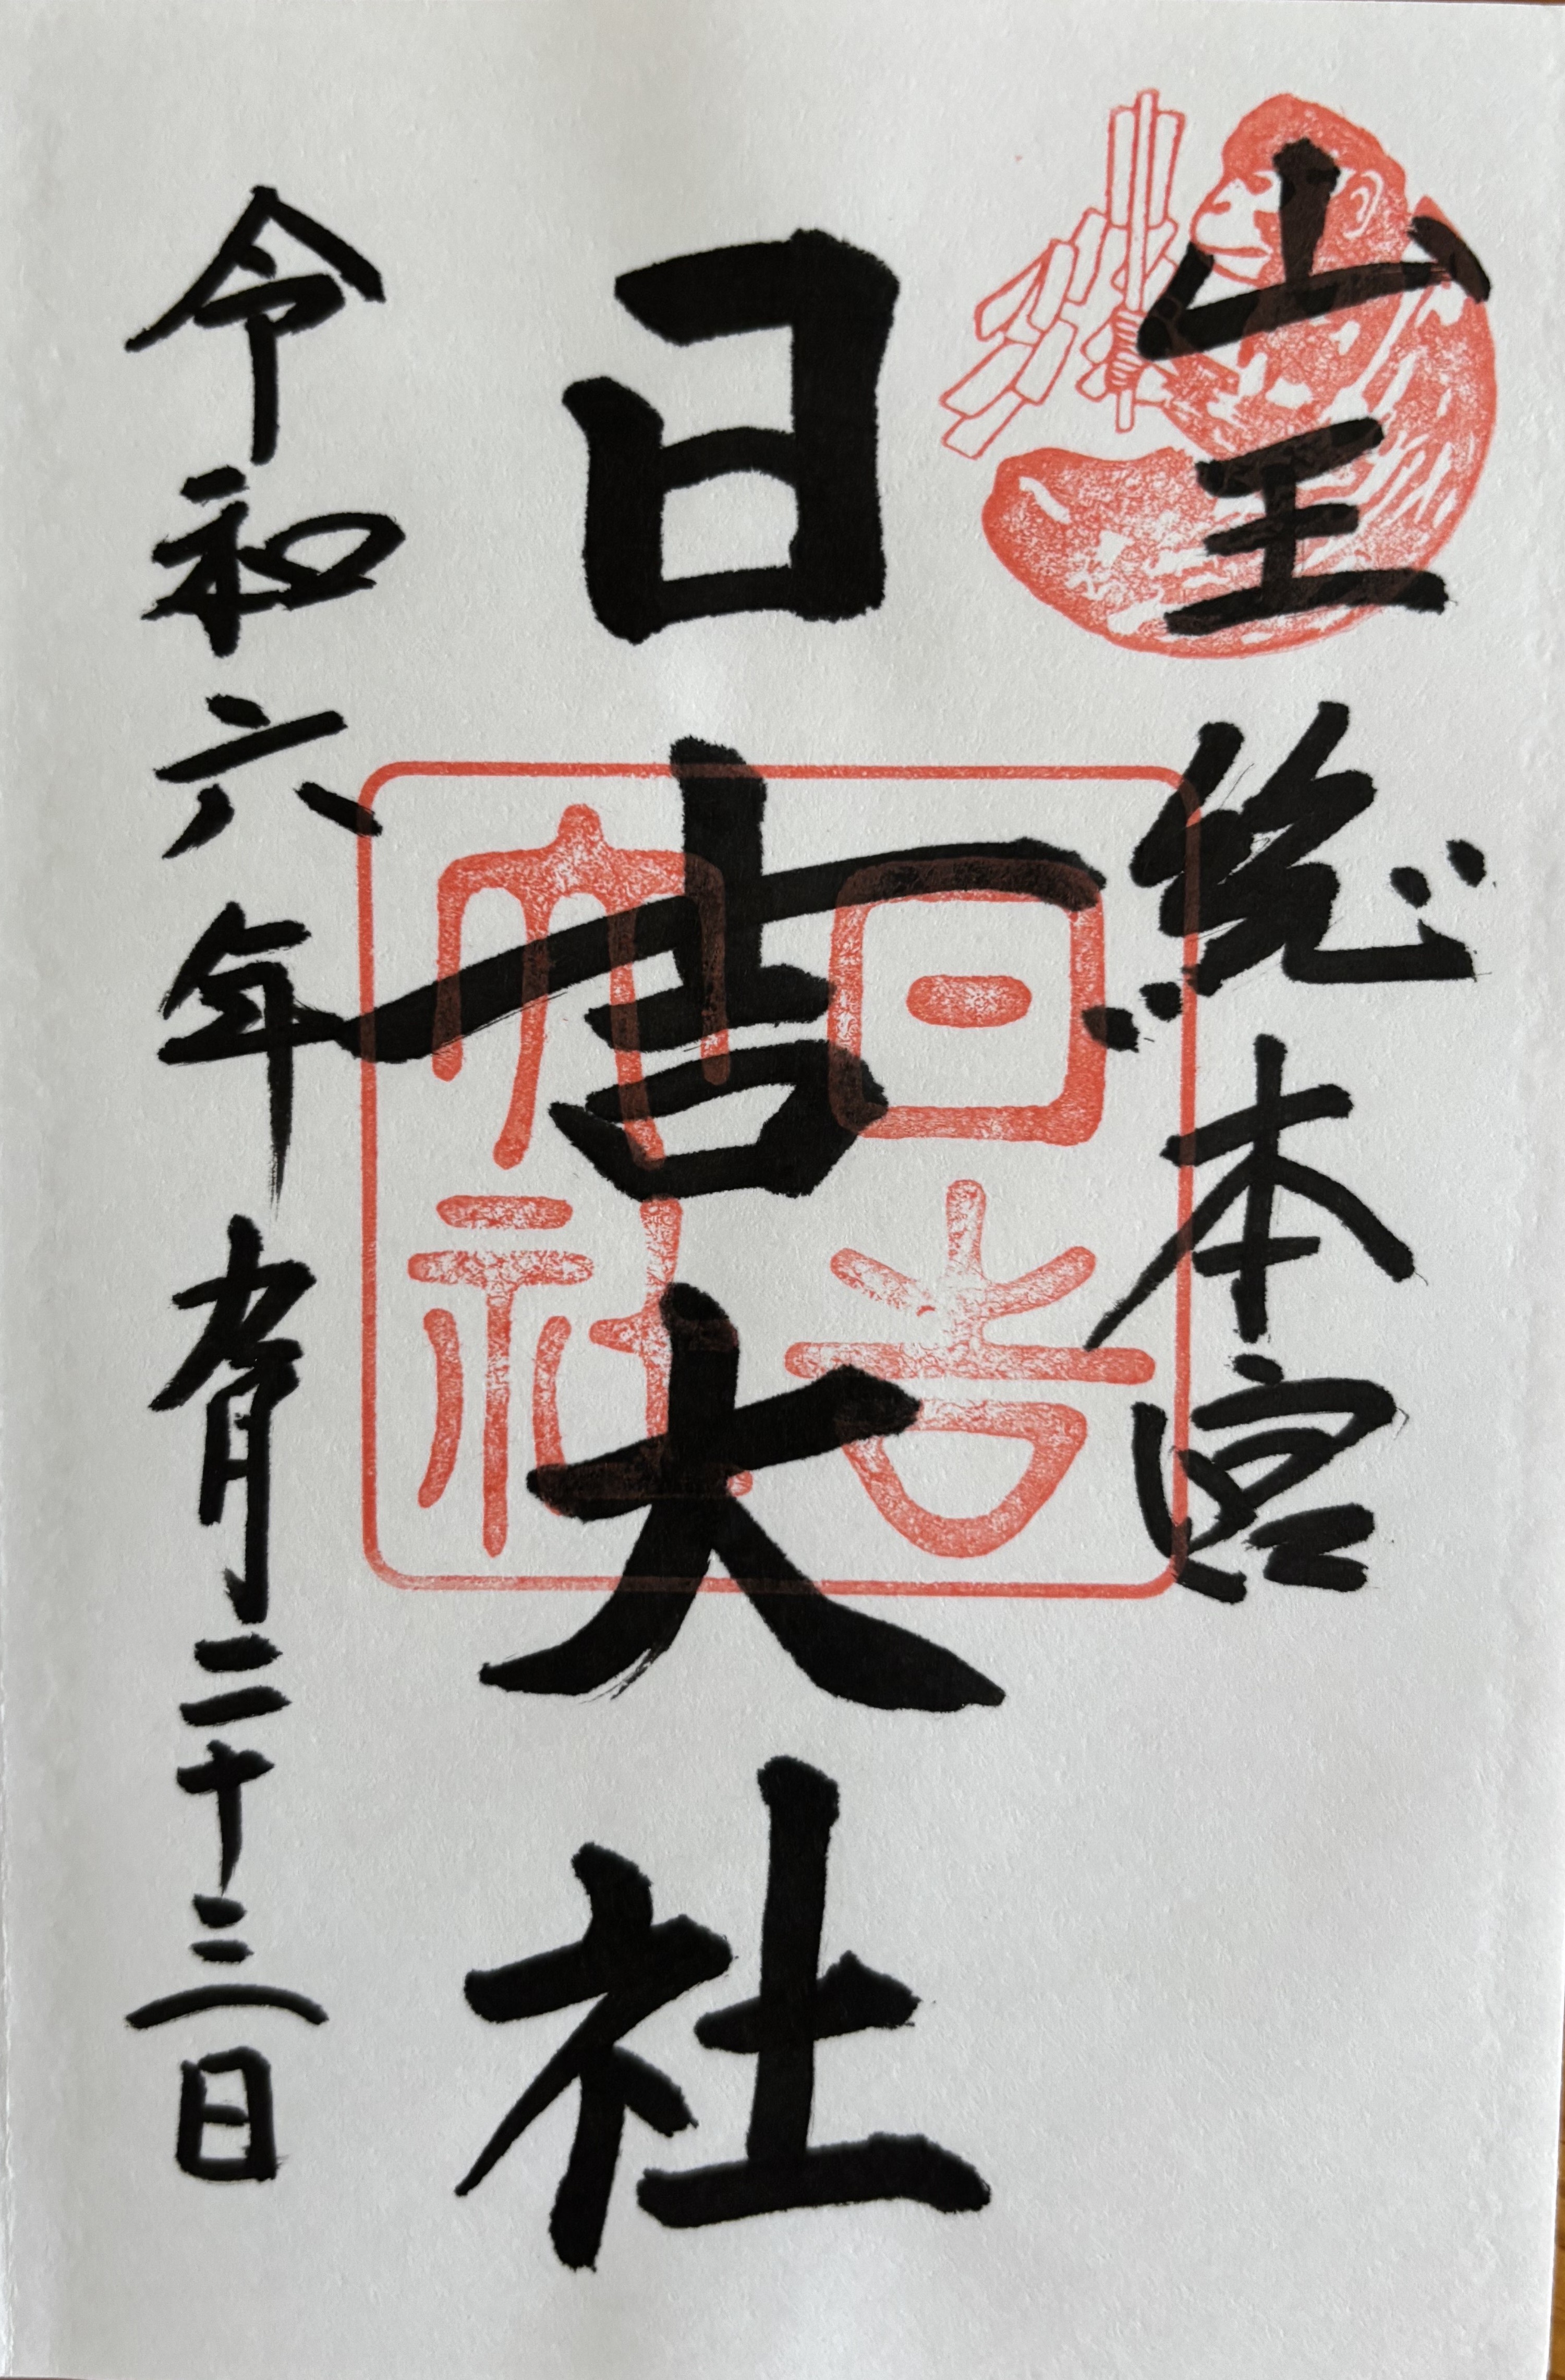 山王総本宮
日吉大社
日吉
大社
令和六年九月二十三日